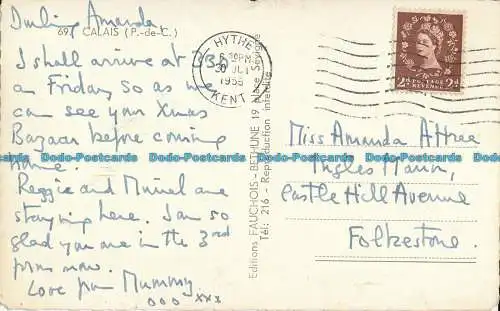 Darling Amanda
69. CALAIS (P.-de-C.)
I shall arrive at
on Friday so as we
can see your Xmas
Bazaar before coming
home.
Reggie and Muriel are
staying here. I am so
glad you are in the 3rd
form now.
Love from Mummy
OOO XXX
Editions FAUCHOIS - BÉTHUNE 19 Place Sévigné
Tél: 216 - Reproduction interdite
HYTHE
KENT
2d POSTAGE REVENUE 2d
Miss Amanda Attree
Ingles Manor,
Castle Hill Avenue
Folkestone.
Dodo-Postcards Dodo-Postcards Dodo-Postcards Dodo-Postcards Dodo-Postcards